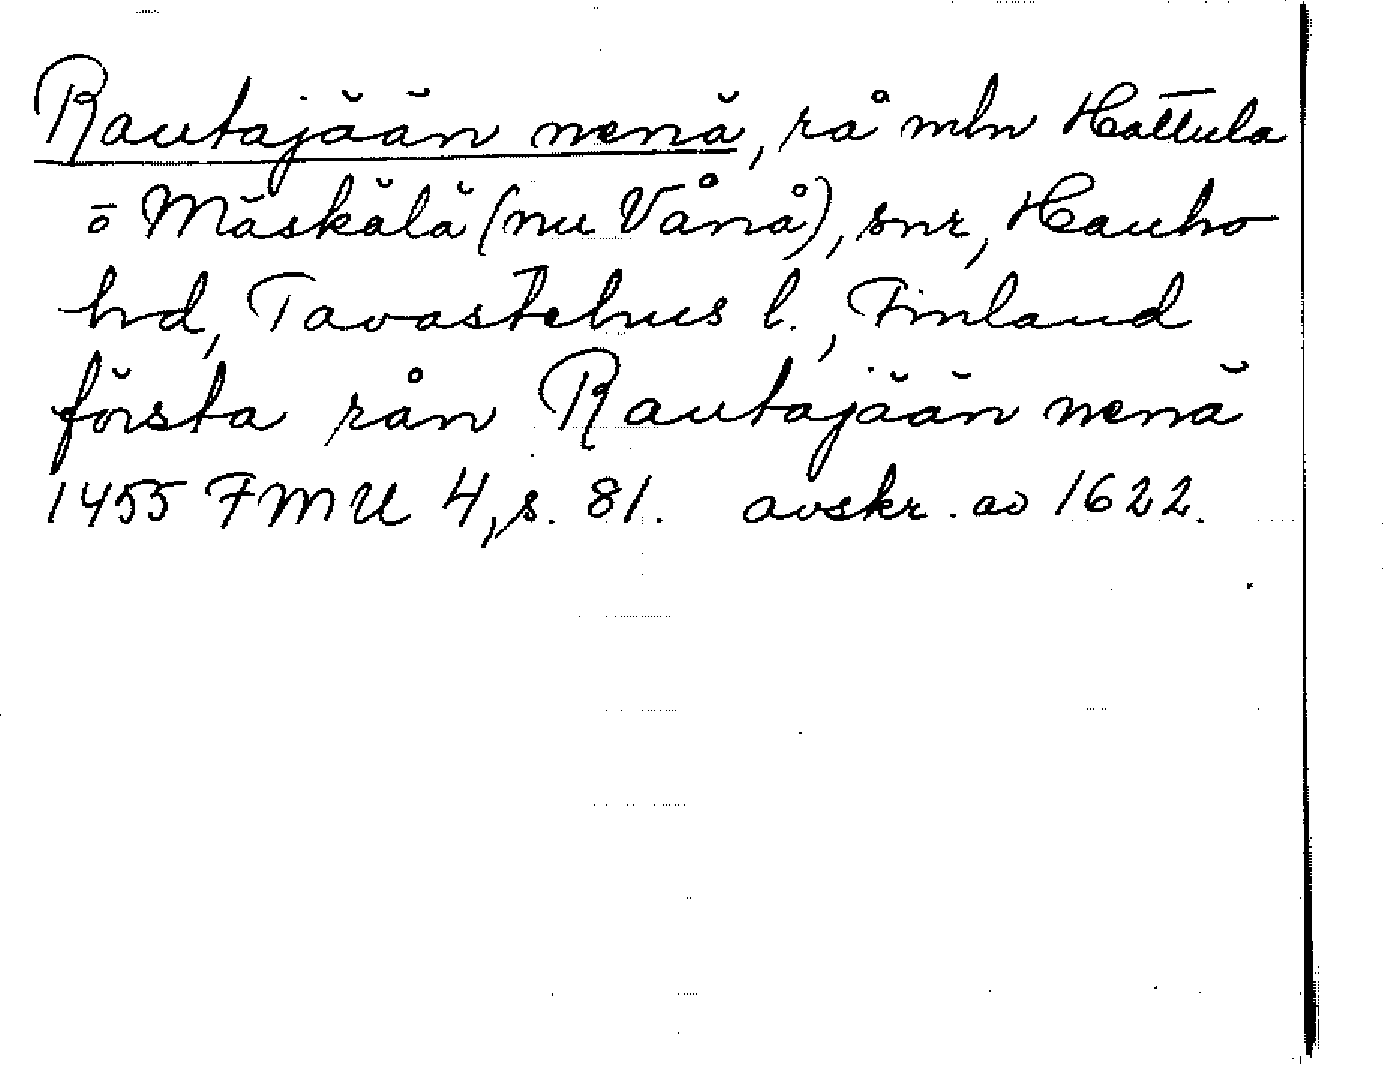 Rautajään nenä, rå mln Hattula
ō Mäskälä (nu Vånå), snr, Hauho
hrd, Tavastehus l., Finland
första rån Rautajään nenä
1455 FMU 4, s. 81. avskr. av 1622.